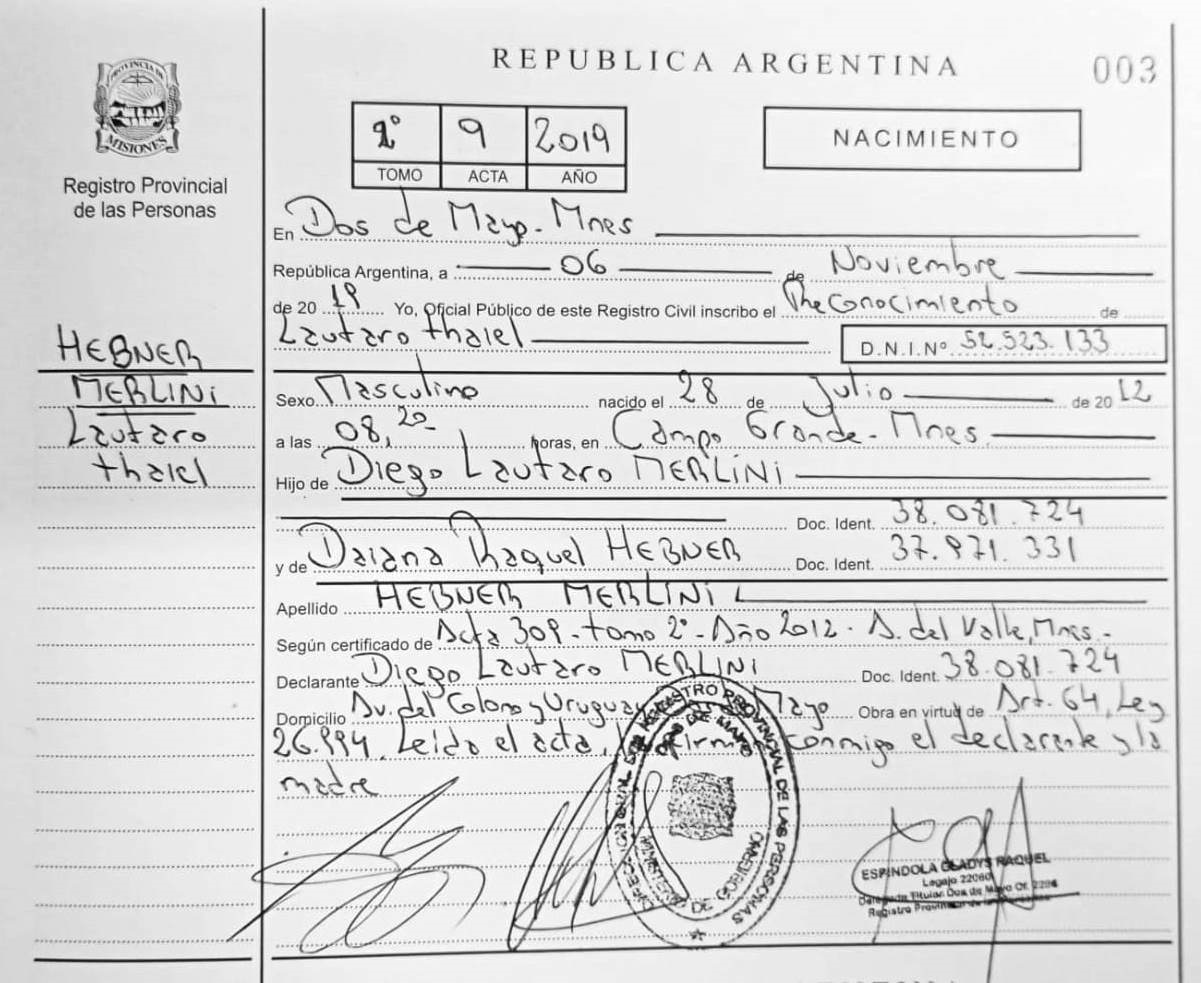 REPUBLICA ARGENTINA
003
PROVINCIA DE
MISIONES
Registro Provincial
de las Personas
2° 9 2019
TOMO ACTA AÑO
NACIMIENTO
En Dos de Mayo - Mnes
República Argentina, a 06 de Noviembre
de 20 19 Yo, Oficial Público de este Registro Civil inscribo el Reconocimiento de
Lautaro thaiel D.N.I.Nº 52.523.133
HEBNER
MERLINi
Lautaro
thaiel
Sexo Masculino nacido el 28 de Julio de 20 12
a las 08,20 horas, en Campo Grande - Mnes.
Hijo de Diego Lautaro MERLINi
Doc. Ident. 38.081.724
y de Daiana Raquel HEBNER Doc. Ident. 37.971.331
Apellido HEBNER MERLINi
Según certificado de Acta 309 - tomo 2° - Año 2012 - A. del Valle, Mnes.-
Declarante Diego Lautaro MERLINI Doc. Ident. 38.081.724
Domicilio Av. del Colono y Uruguay Mayo Obra en virtud de Art. 64, Ley
26.994. Leída el acta, firma conmigo el declarante y la
madre
REGISTRO PROVINCIAL DE LAS PERSONAS
DOS DE MAYO
MINISTERIO DE GOBIERNO
ESPINDOLA GLADYS RAQUEL
Legajo 22060
Delegada Titular Dos de Mayo Of. 2294
Registro Provincial de las Personas